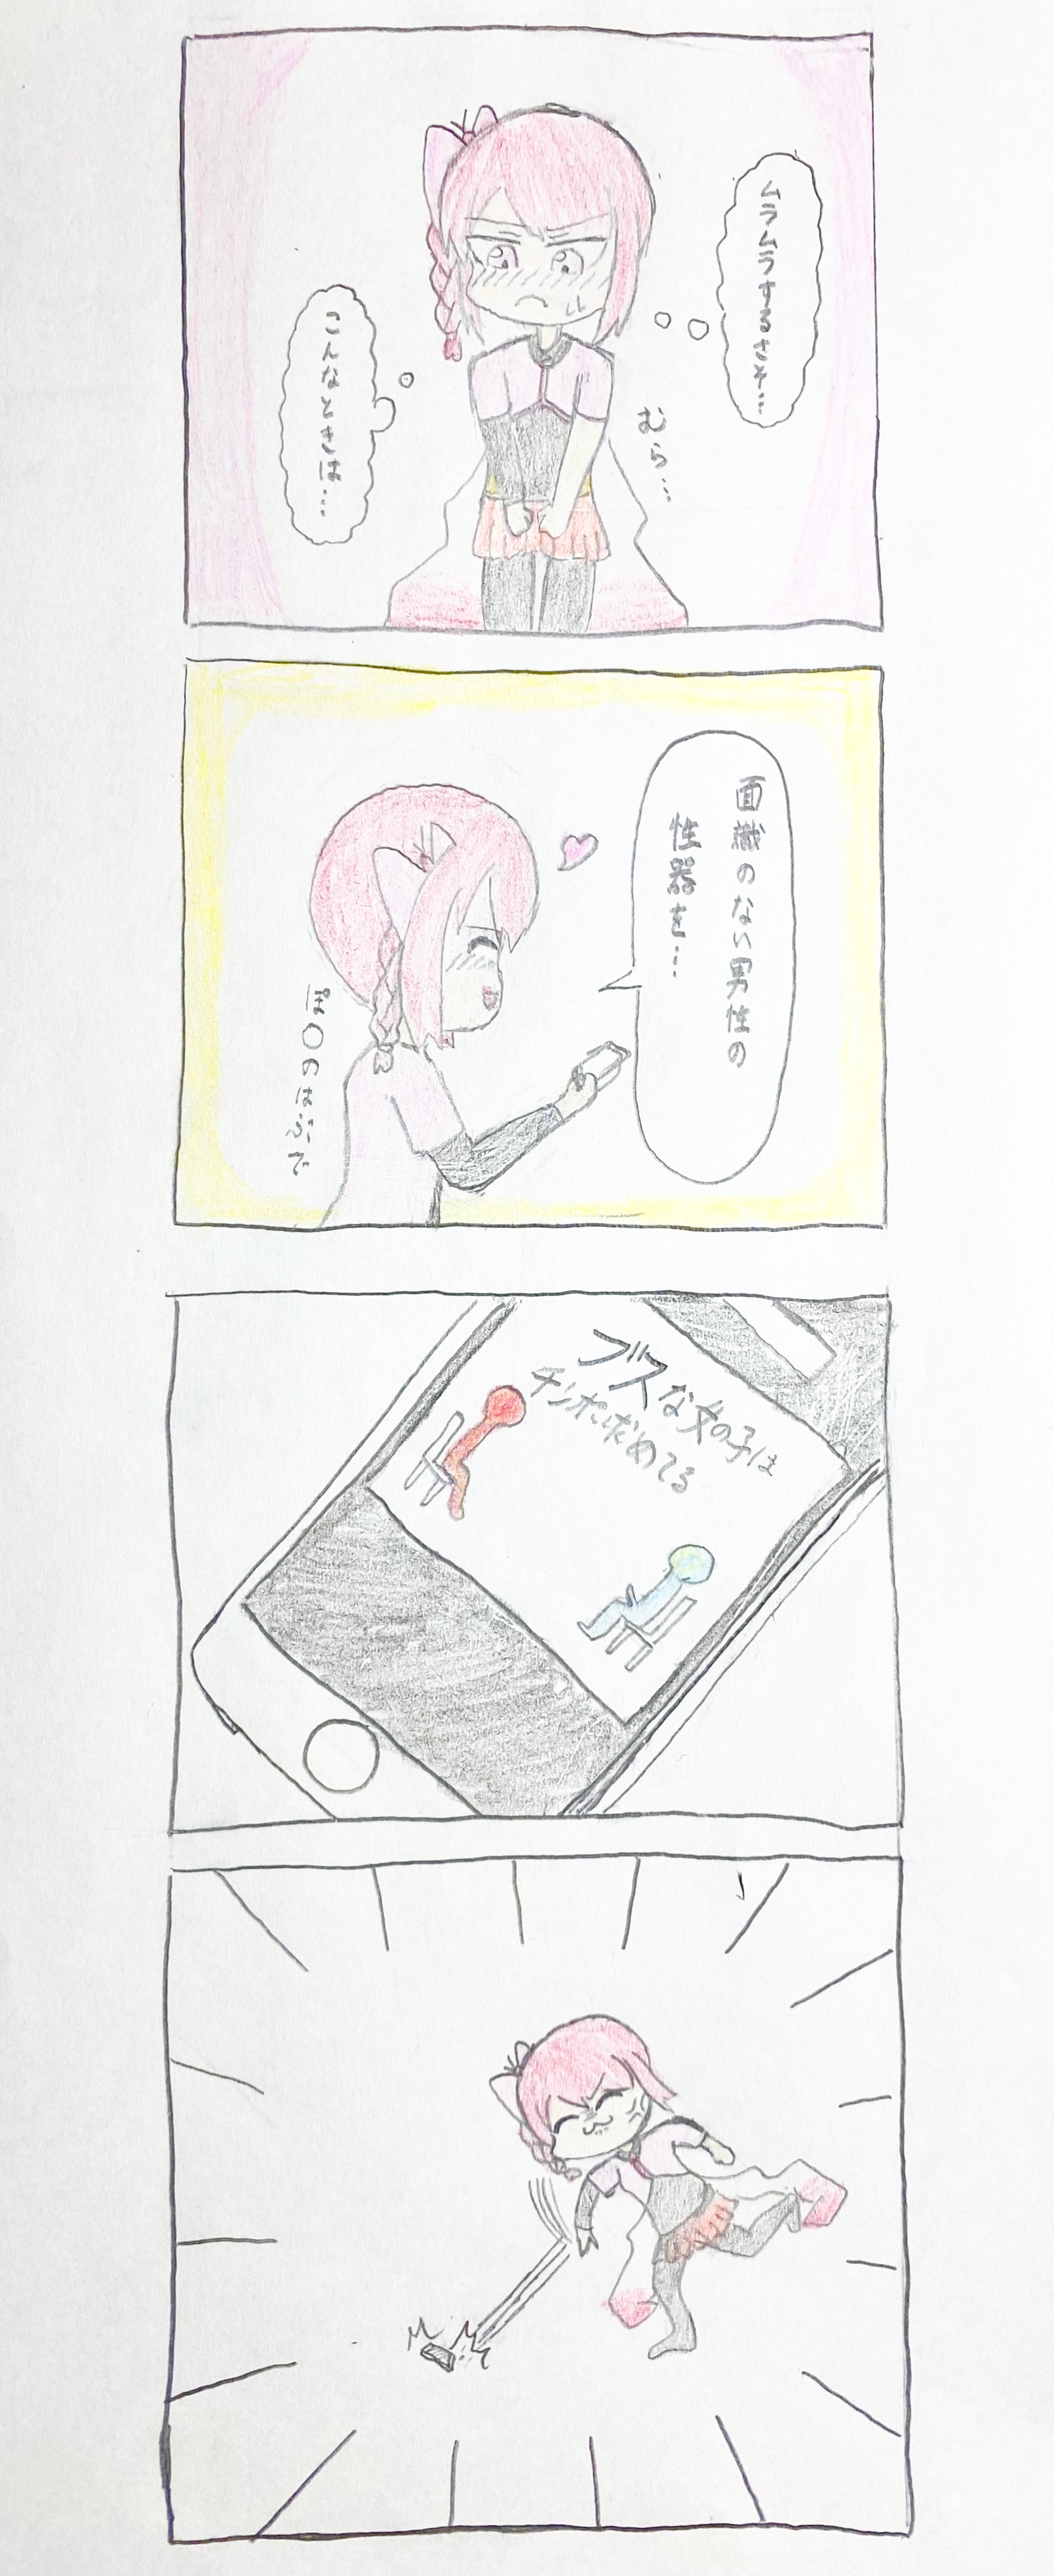 ムラムラするさそ…
むら…
こんなときは…
面識のない男性の
性器を…
ぽ〇のはぶで
ブスな女の子は
チンポ求めてる